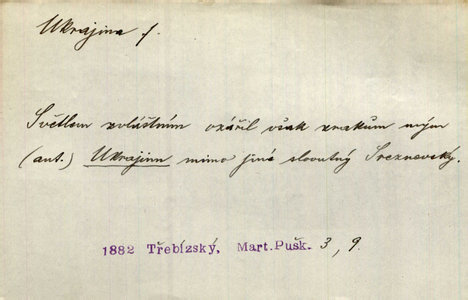 Ukrajina f.
Světlem zvláštním ozářil však zrakům mým
(aut.) Ukrajinu mimo jiné slovutný Sreznevský.
1882 Třebízský, Mart.Pušk. 3, 9.